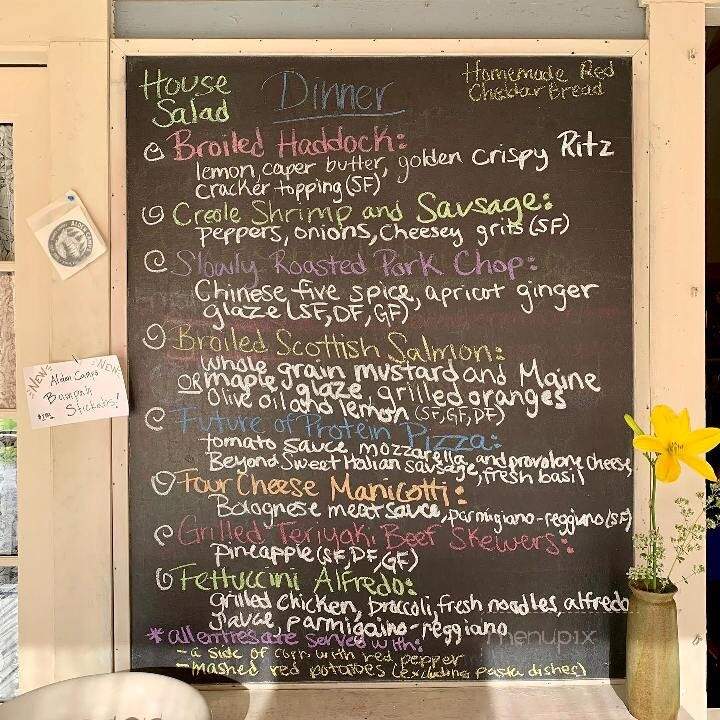 House
Salad
Dinner
Homemade Red
Cheddar Bread
Broiled Haddock:
lemon caper butter, golden crispy Ritz
cracker topping (SF)
Creole Shrimp and Sausage:
peppers, onions, Cheesey grits (SF)
Slowly Roasted Pork Chop:
Chinese five spice, apricot ginger
glaze (SF, DF, GF)
Broiled Scottish Salmon:
whole grain mustard and Maine
maple glaze, grilled oranges
OR Olive oil and lemon (SF, GF, DF)
Future of Protein Pizza:
tomato sauce, mozzarella, and provolone cheese,
Beyond Sweet Italian sausage, fresh basil
Four Cheese Manicotti:
Bolognese meat sauce, parmigiano-reggiano (SF)
Grilled Teriyaki Beef Skewers:
Pineapple (SF, DF, GF)
Fettuccini Alfredo:
grilled chicken, broccoli, fresh noodles, alfredo
sauce, parmigaino-reggiano
*all entrees are served with:
- a side of corn with red pepper
- mashed red potatoes (excluding pasta dishes)
menupix
NEW
NEW
Alden Camps
Bumper
Stickers!